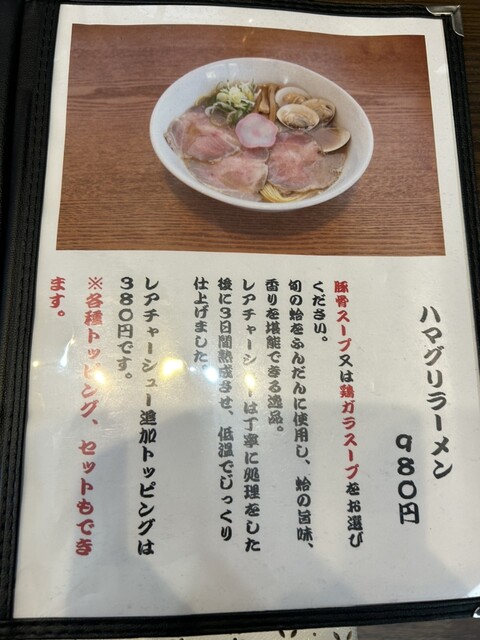 ハマグリラーメン
980円
豚骨スープ又は鶏ガラスープをお選び
ください。
旬の蛤をふんだんに使用し、蛤の旨味、
香りを堪能できる逸品。
レアチャーシューは丁寧に処理をした
後に3日間熟成させ、低温でじっくり
仕上げました。
レアチャーシュー追加トッピングは
380円です。
※各種トッピング、セットもでき
ます。